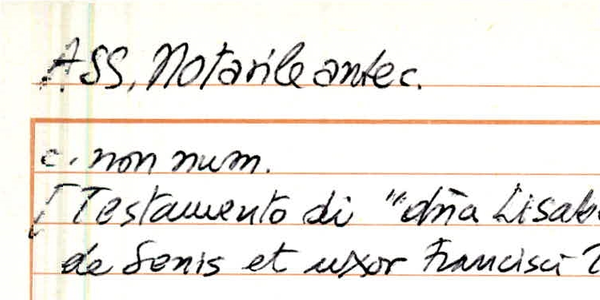 ASS, Notarile antec.
c. non num.
[Testamento di "dña Lisab
de Senis et uxor Francisci